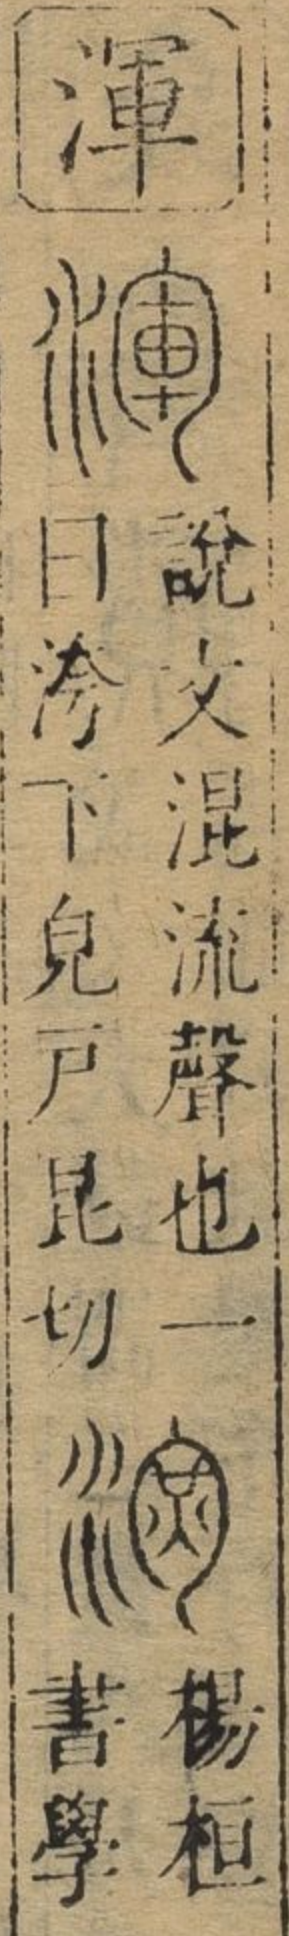 渾
渾
說文混流聲也一
曰洿下皃戶昆切
楊桓
書學